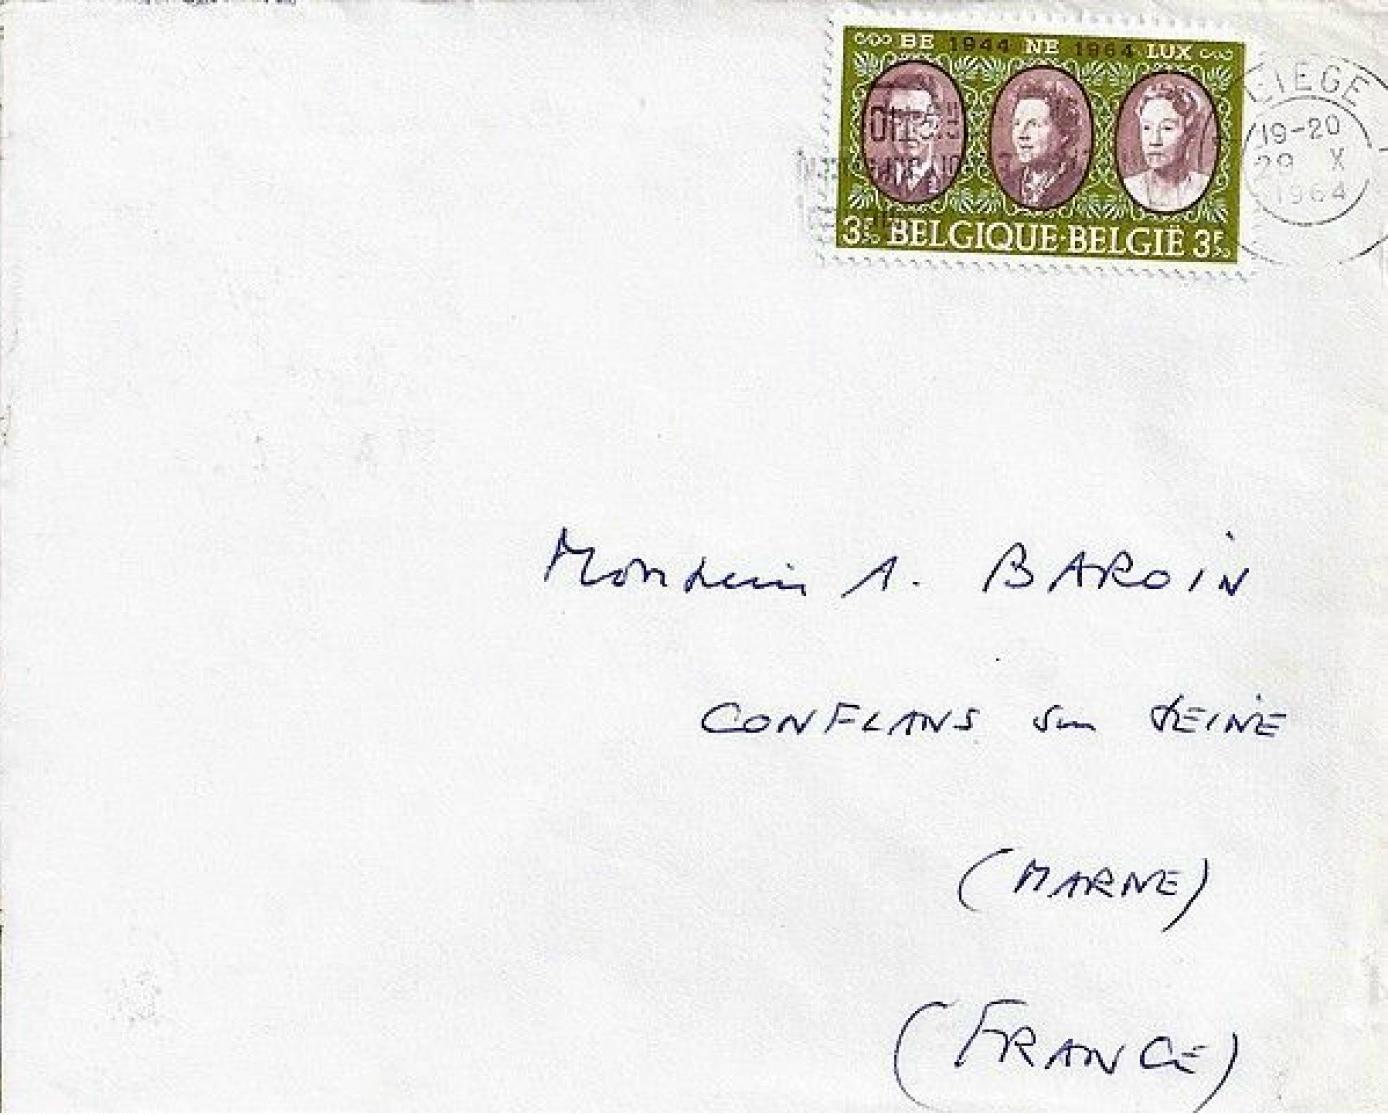 BE 1944 NE 1964 LUX
3F50 BELGIQUE·BELGIË 3F50
LIEGE
19-20
29 X
1964
Monsieur A. BAROIN
CONFLANS sur SEINE
(MARNE)
(FRANCE)